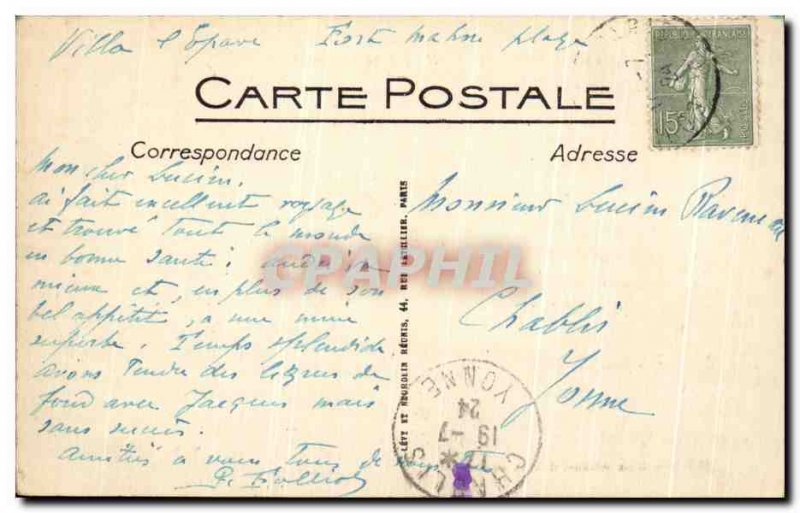 Villa l'Epave Fort Mahon plage
REPUBLIQUE FRANÇAISE
15c
CARTE POSTALE
Correspondance
Adresse
Mon cher Lucien,
ai fait excellent voyage
et trouvé toute le monde
en bonne santé : va
mieux et, en plus de son
bel appétit, a une mine
superbe. Temps splendide
avons tendu des lignes de
fond avec Jacques mais
sans succès.
Amitiés à vous tous de
LÉVY ET NEURDEIN RÉUNIS, 44, RUE LETELLIER, PARIS
Monsieur Lucien Raveneau
Chablis
Yonne
CPAPHIL
CHABLIS
YONNE
17 *
19 -7
24